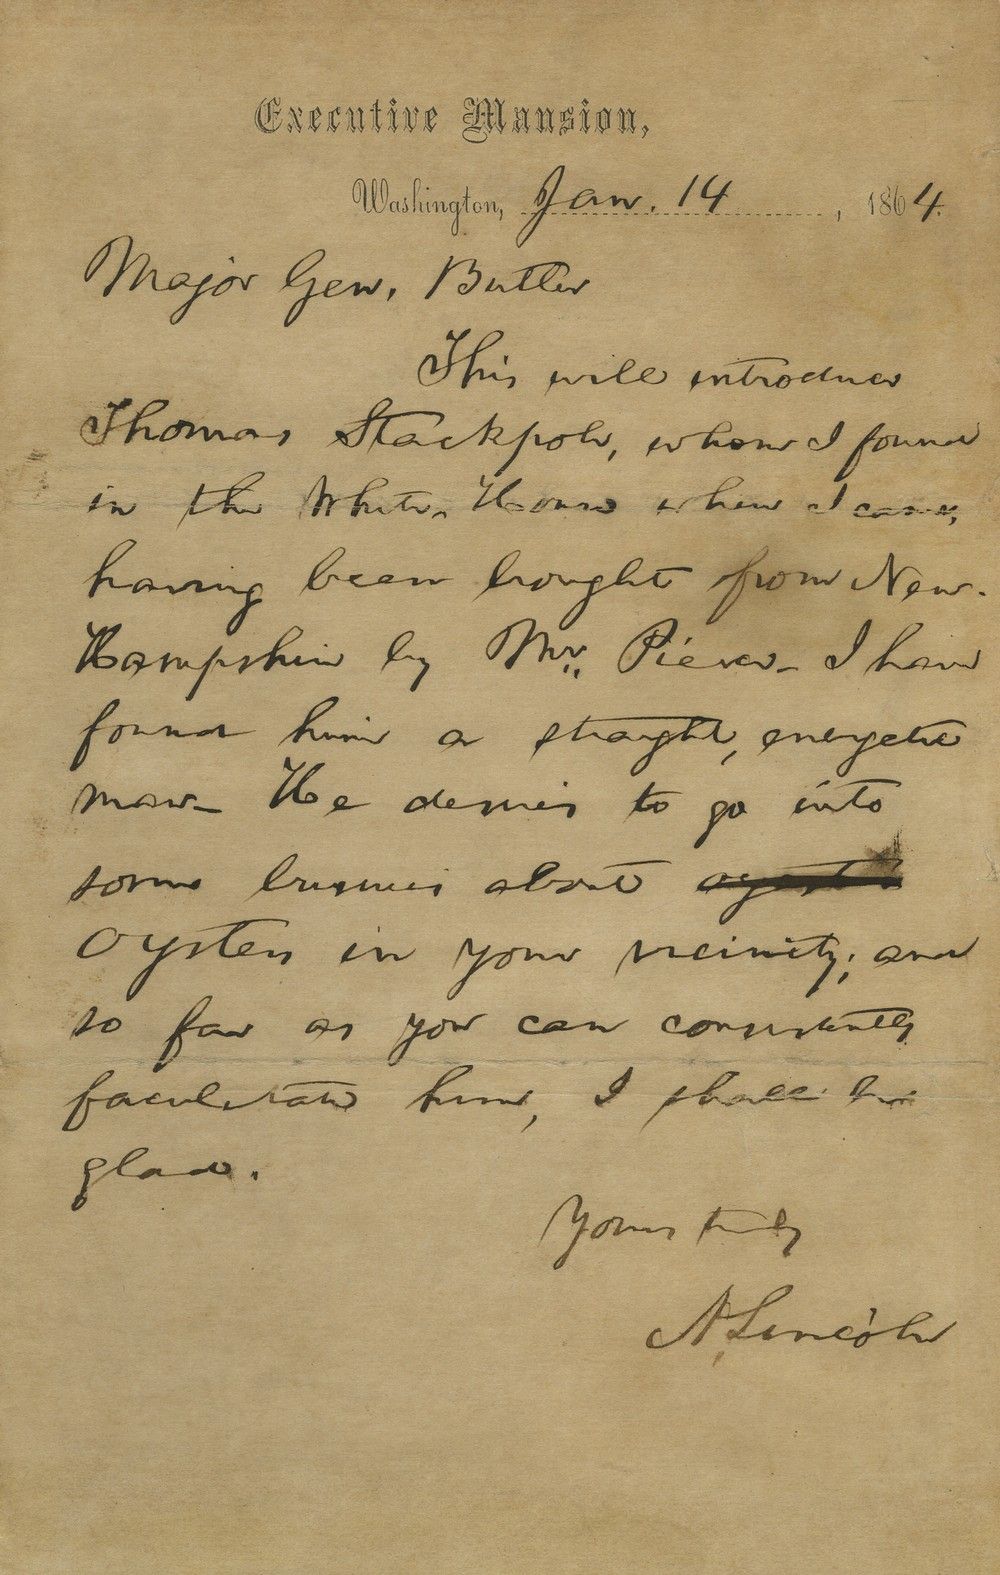 Executive Mansion,
Washington, Jan. 14, 1864.
Major Gen. Butler
This will introduce
Thomas Stackpole, whom I found
in the White-House when I came,
having been brought from New-
Hampshire by Mr. Pierce— I have
found him a straight, energetic
man— He desires to go into
some business about
Oysters in your vicinity; and
so far as you can consistently
facilitate him, I shall be
glad.
Yours truly
A. Lincoln